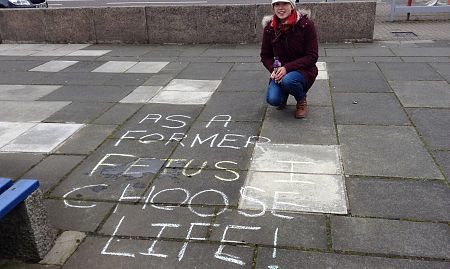 AS A
FORMER
FETUS I
CHOOSE
LIFE!